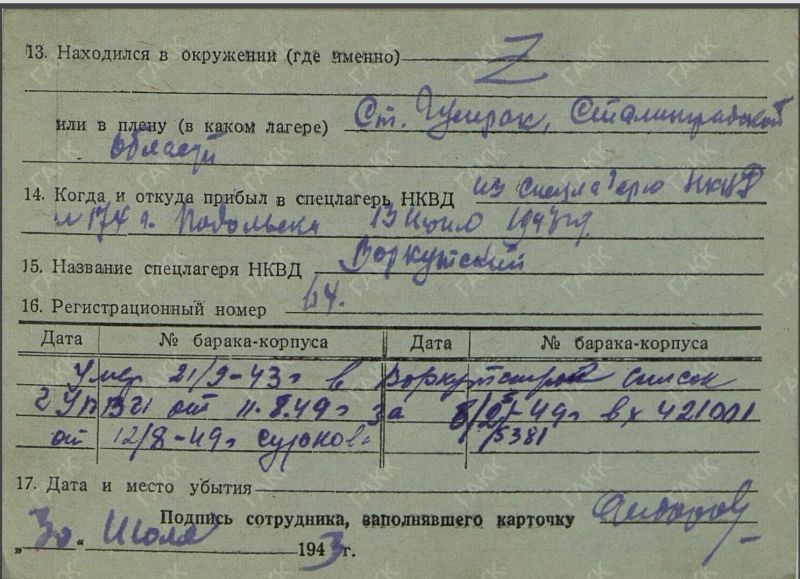 13. Находился в окружении (где именно) Z
или в плену (в каком лагере) Ст. Гумрак, Сталинградской
области
14. Когда и откуда прибыл в спецлагерь НКВД из спецлагеря НКВД
№ 174 г. Подольска 13 июля 1943 г.
15. Название спецлагеря НКВД Воркутский
16. Регистрационный номер 64.
Дата № барака-корпуса Дата № барака-корпуса
Умер 21/9-43 г в Воркутстрое список
от 11.8.49 г за 49 г вх 421011
от 12/8-49 г 5381
17. Дата и место убытия
Подпись сотрудника, заполнявшего карточку
„30“ Июля 1943 г.
ГАКК